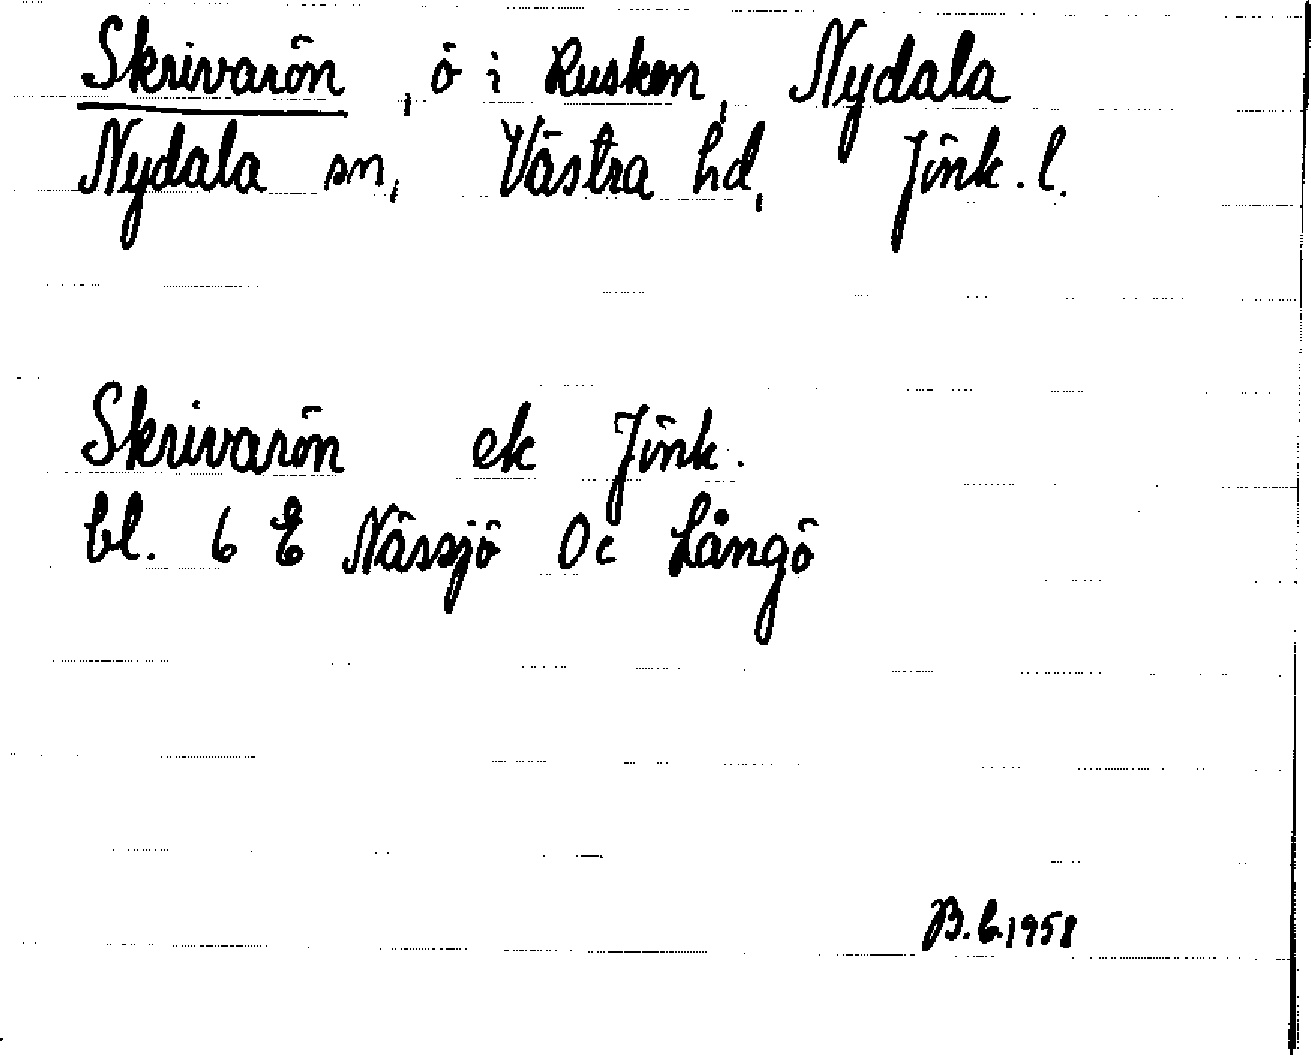 Skrivarön, ö i Rusken, Nydala
Nydala sn, Västra hd, Jönk. l.
Skrivarön ek Jönk.
bl. 6 E Nässjö 0c Långö
B.C.1958